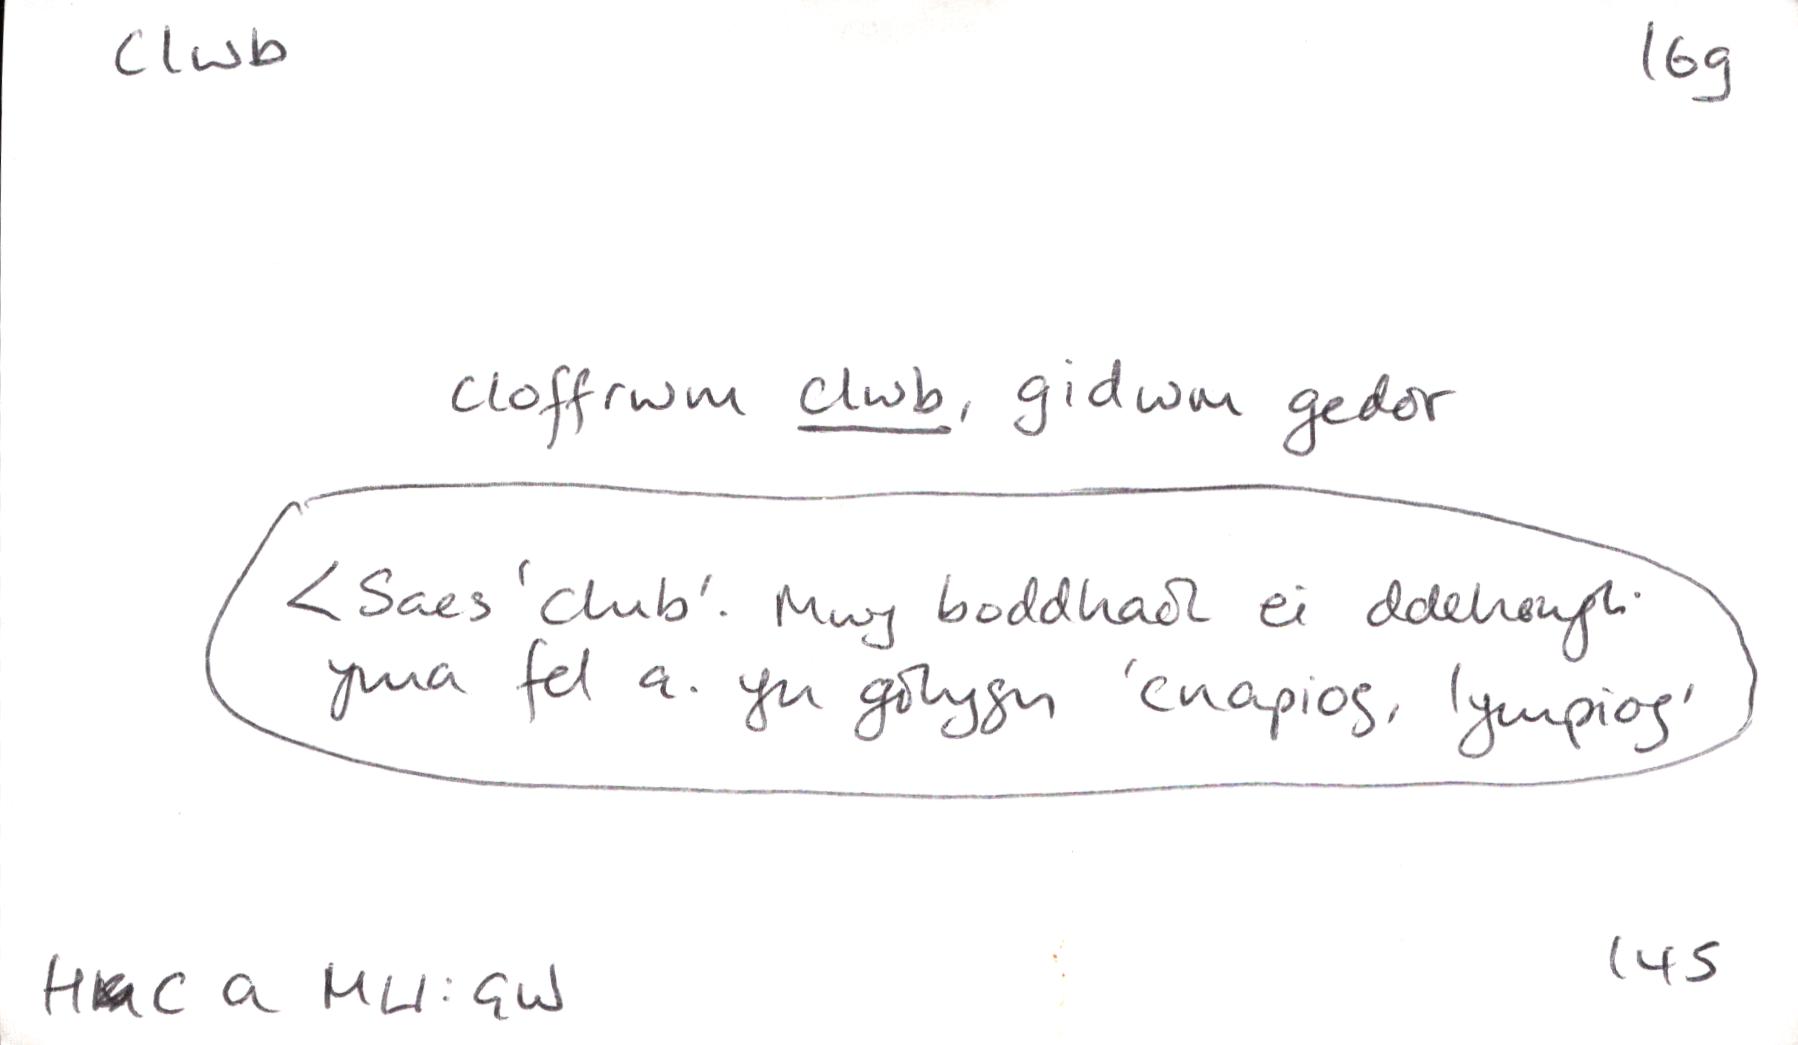 clwb
16g
cloffrwm clwb, gidwm gedor
< Saes 'club'. Mwy boddhaol ei ddehongli
yma fel a. yn golygu 'cnapiog, lympiog'
HC a MLl: GW
145